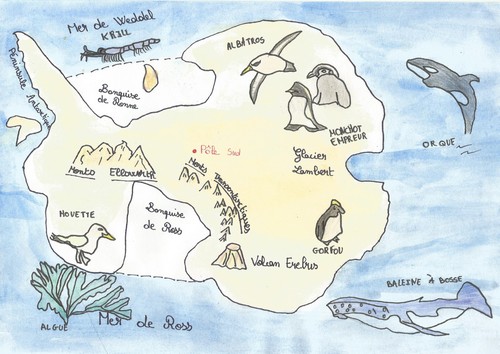 Mer de Weddel
KRILL
ALBATROS
Péninsule Antarctique
Banquise
de Ronne
MANCHOT
EMPREUR
ORQUE
Pôle Sud
Glacier
Lambert
Monts Ellsworth
Monts Transantarctiques
MOUETTE
Banquise
de Ross
GORFOU
Volcan Erebus
BALEINE à BOSSE
ALGUE
Mer de Ross